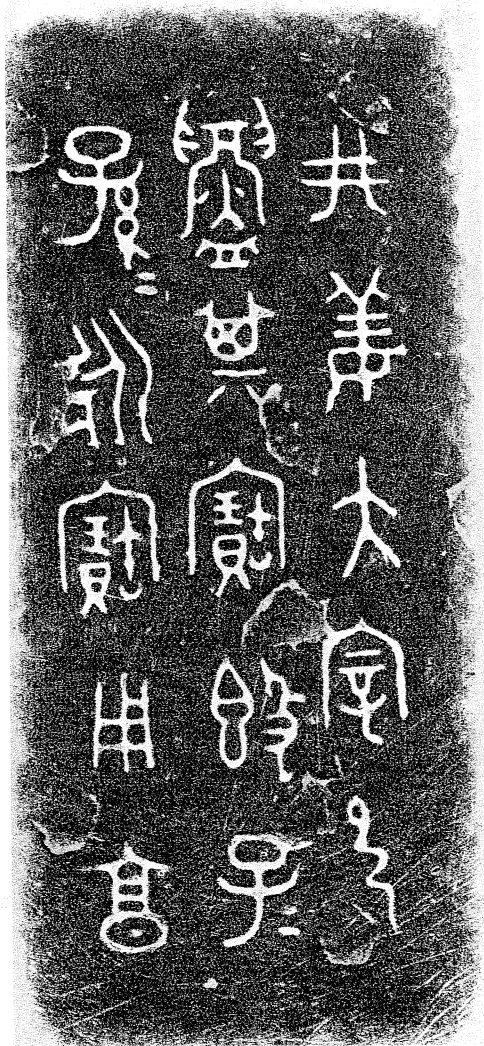 井姜大宰巳
鑄其寶簋子＝
孫＝永寶用享